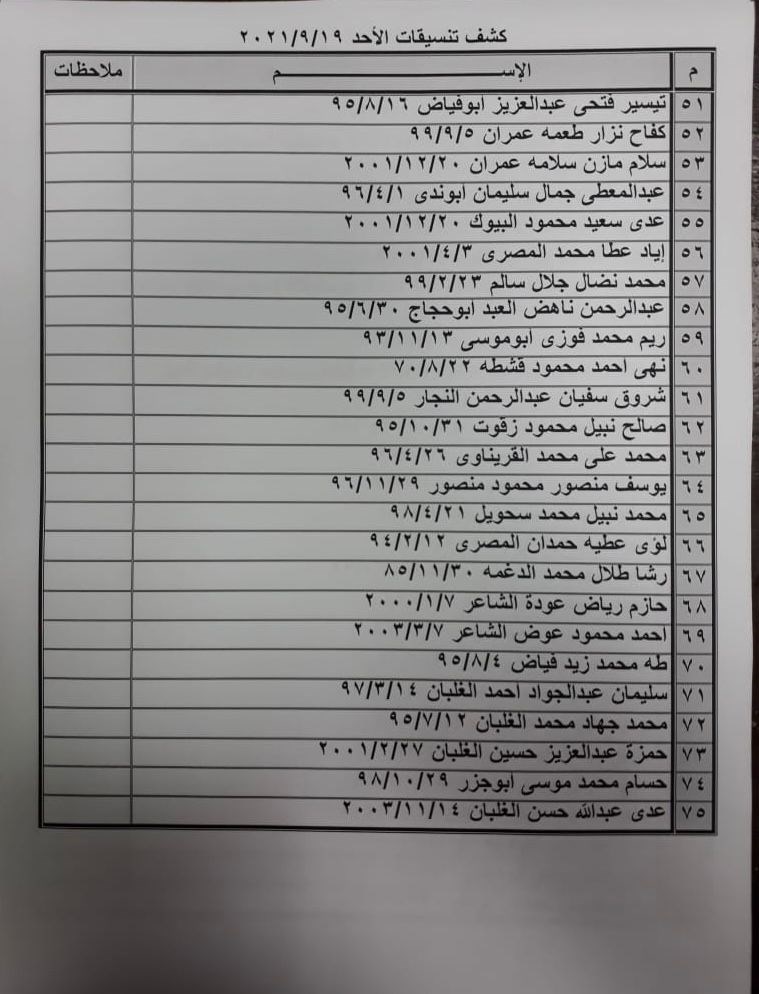 كشف تنسيقات الأحد ٢٠٢١/٩/١٩
م الإســـــــــــــــم ملاحظات
٥١ تيسير فتحى عبدالعزيز ابوفياض ٩٥/٨/١٦
٥٢ كفاح نزار طعمه عمران ٩٩/٩/٥
٥٣ سلام مازن سلامه عمران ٢٠٠١/١٢/٢٠
٥٤ عبدالمعطى جمال سليمان ابوندى ٩٦/٤/١
٥٥ عدى سعيد محمود البيوك ٢٠٠١/١٢/٢٠
٥٦ إياد عطا محمد المصرى ٢٠٠١/٤/٣
٥٧ محمد نضال جلال سالم ٩٩/٢/٢٣
٥٨ عبدالرحمن ناهض العبد ابوحجاج ٩٥/٦/٣٠
٥٩ ريم محمد فوزى ابوموسى ٩٣/١١/١٣
٦٠ نهى احمد محمود قشطه ٧٠/٨/٢٢
٦١ شروق سفيان عبدالرحمن النجار ٩٩/٩/٥
٦٢ صالح نبيل محمود زقوت ٩٥/١٠/٣١
٦٣ محمد على محمد القريناوى ٩٦/٤/٢٦
٦٤ يوسف منصور محمود منصور ٩٦/١١/٢٩
٦٥ محمد نبيل محمد سحويل ٩٨/٤/٢١
٦٦ لؤى عطيه حمدان المصرى ٩٤/٢/١٢
٦٧ رشا طلال محمد الدغمه ٨٥/١١/٣٠
٦٨ حازم رياض عودة الشاعر ٢٠٠٠/١/٧
٦٩ احمد محمود عوض الشاعر ٢٠٠٣/٣/٧
٧٠ طه محمد زيد فياض ٩٥/٨/٤
٧١ سليمان عبدالجواد احمد الغلبان ٩٧/٣/١٤
٧٢ محمد جهاد محمد الغلبان ٩٥/٧/١٢
٧٣ حمزة عبدالعزيز حسين الغلبان ٢٠٠١/٢/٢٧
٧٤ حسام محمد موسى ابوجزر ٩٨/١٠/٢٩
٧٥ عدى عبدالله حسن الغلبان ٢٠٠٣/١١/١٤